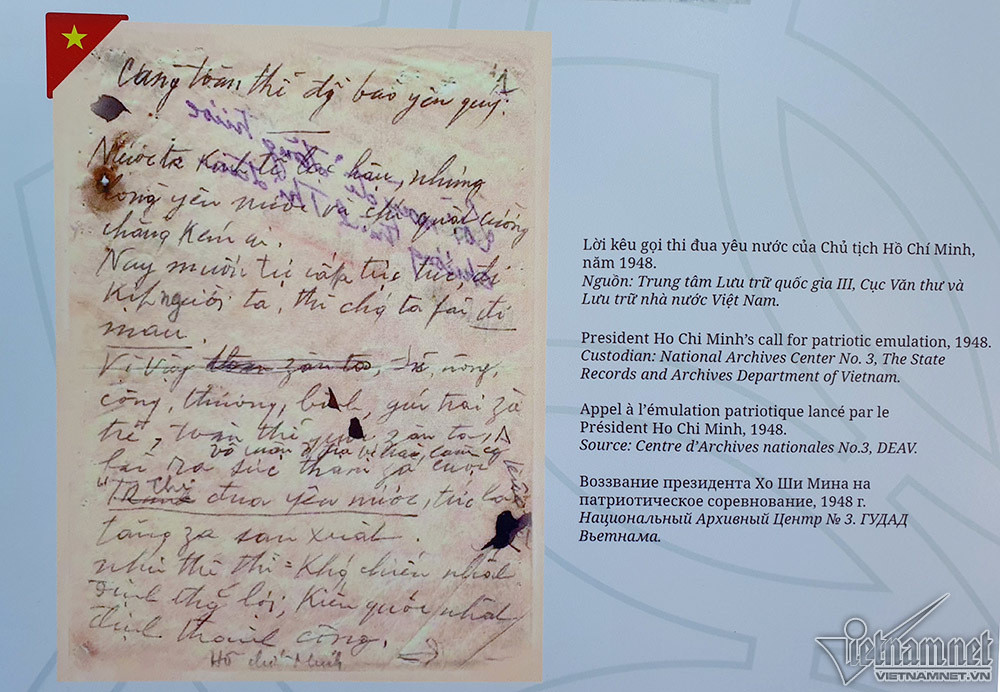 Cùng toàn thể đg bào yêu quý:
1
Nước ta kinh tế lạc hậu, nhưng
lòng yêu nước và chí quật cường
chẳng kém ai.
Nay muốn tự cấp tự túc, đi
kịp người ta, thì chg ta fải đi
mau.
Vì vậy sĩ, nông,
công, thương, binh, gái trai zà
trẻ, toàn thể zân ta,
vô luận ở địa vị nào, làm cg
fải ra sức tham za cuộc
"Thi đua yêu nước, tức là
tăng za sản xuất.
như thế thì = Khg chiến nhất
định thg lợi, Kiến quốc nhất
định thành công.
Hồ chí Minh
Lời kêu gọi thi đua yêu nước của Chủ tịch Hồ Chí Minh,
năm 1948.
Nguồn: Trung tâm Lưu trữ quốc gia III, Cục Văn thư và
Lưu trữ nhà nước Việt Nam.
President Ho Chi Minh's call for patriotic emulation, 1948.
Custodian: National Archives Center No. 3, The State
Records and Archives Department of Vietnam.
Appel à l'émulation patriotique lancé par le
Président Ho Chi Minh, 1948.
Source: Centre d'Archives nationales No.3, DEAV.
Воззвание президента Хо Ши Мина на
патриотическое соревнование, 1948 г.
Национальный Архивный Центр № 3. ГУДАД
Вьетнама.
Vietnamnet
VIETNAMNET.VN